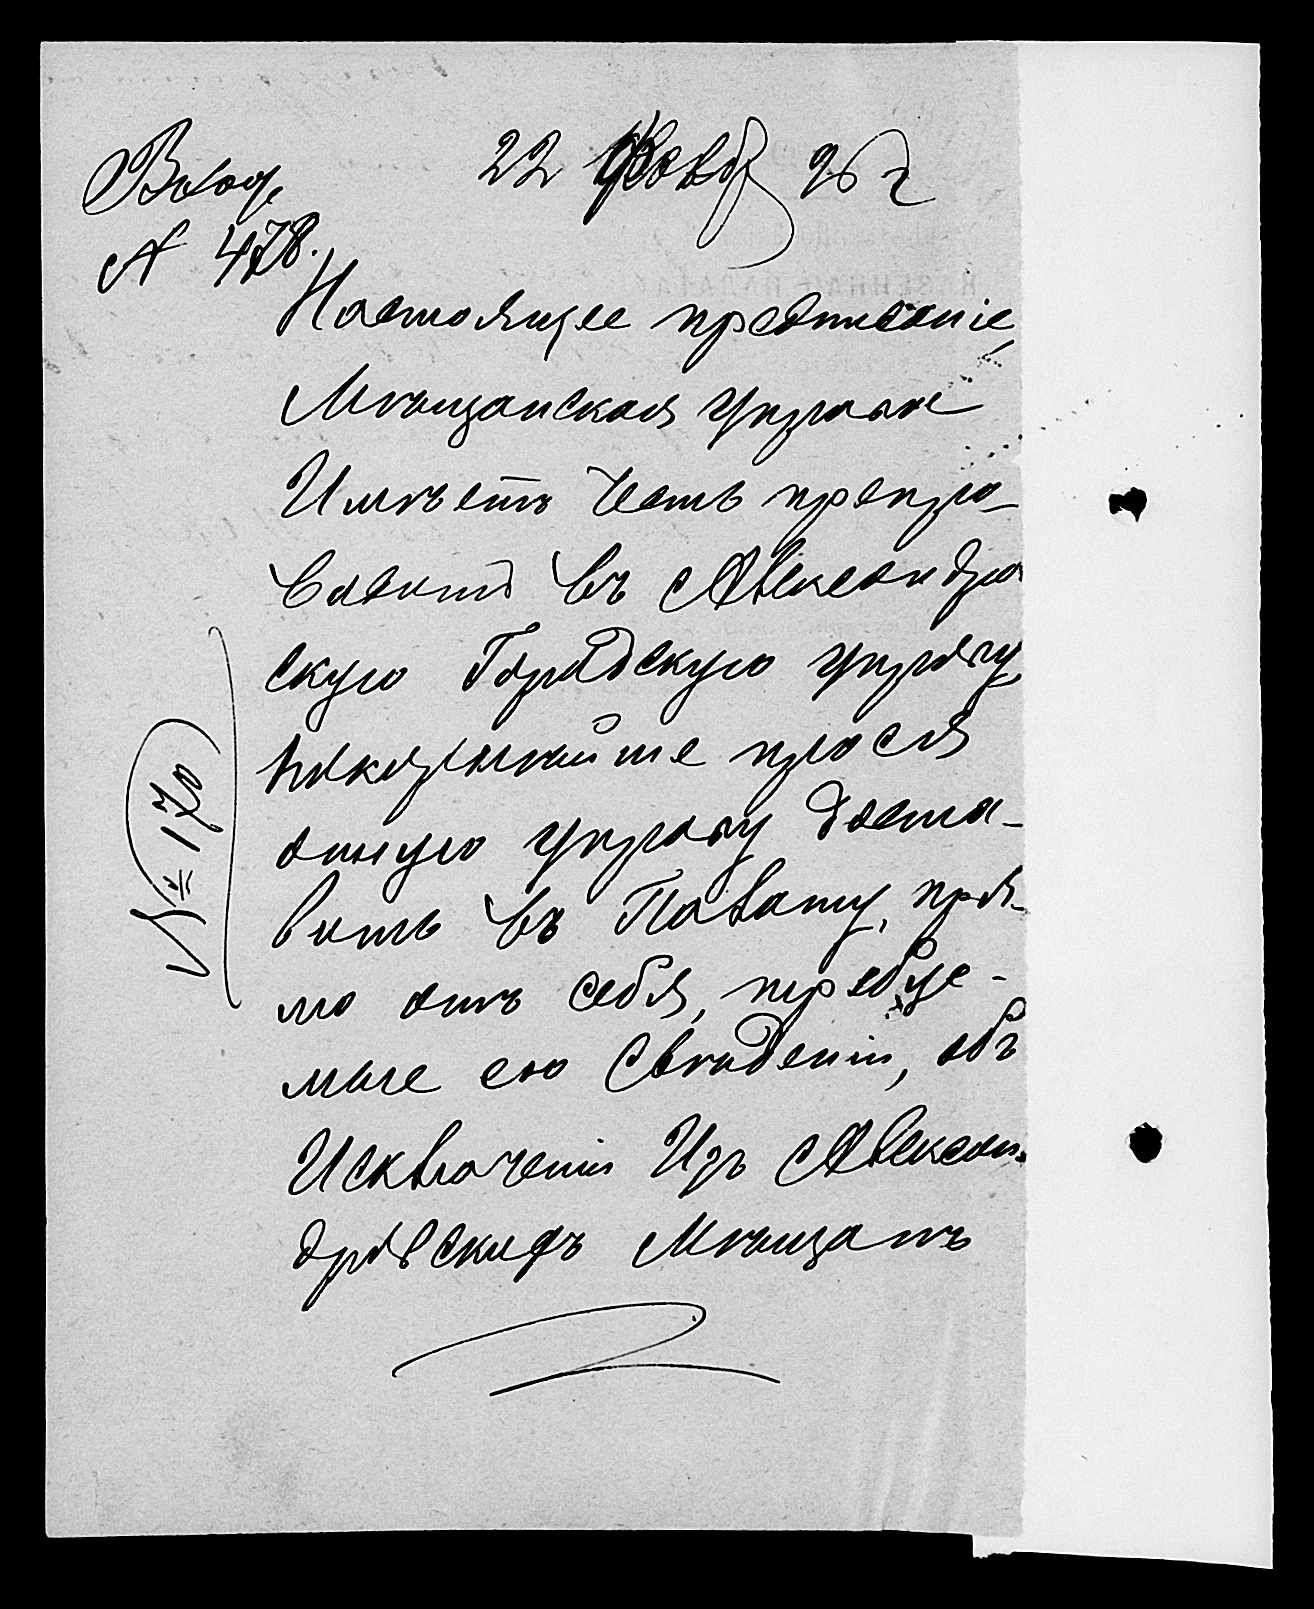 Входя.
№ 478.
22 Февр 96 г
Настоящее предписаніе
Мѣщанская управа
Имѣетъ честь препро-
водить въ Александро
скую Городскую управу
покорнѣйше прося
оную управу доста-
вить въ Палату, пря-
мо отъ себя, требуе-
мые ею Свѣдѣнія, объ
Исключеніи Изъ Алексан-
дровскихъ Мѣщанъ
№ 170